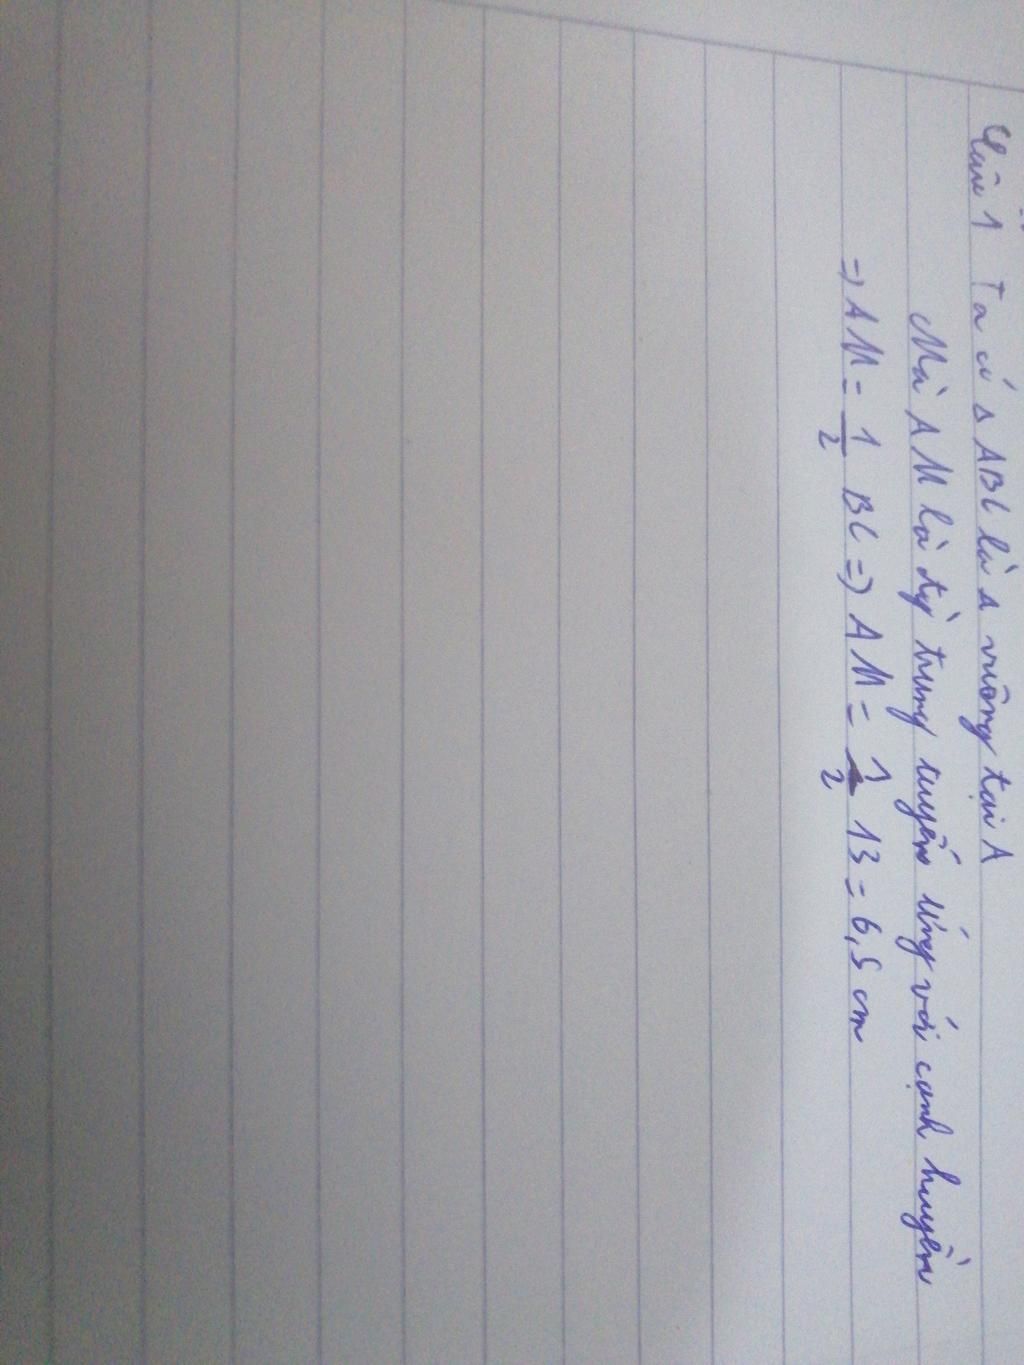 Câu 1 Ta có Δ ABC là Δ vuông tại A
Mà AM là đg trung tuyến ứng với cạnh huyền
=> AM = 1/2 BC => AM = 1/2 13 = 6,5 cm